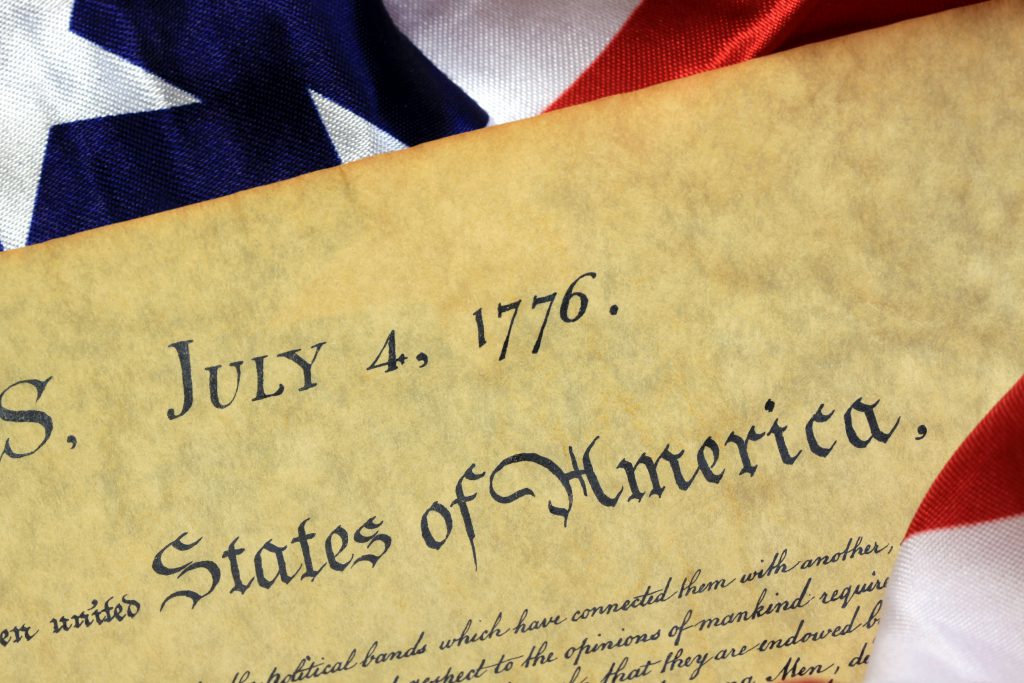 S, JULY 4, 1776.
en united States of America,
the political bands which have connected them with another,
respect to the opinions of mankind require
that they are endowed b
Men, de